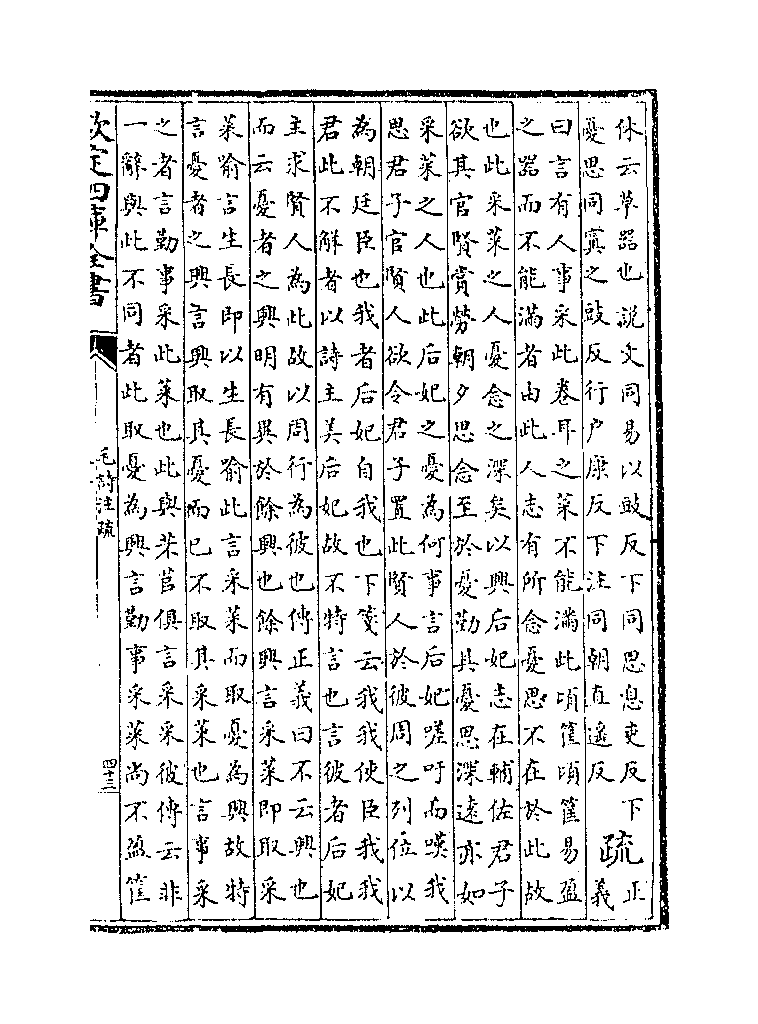 休云草器也說文同易以豉反下同思息吏反下
憂思同寘之豉反行户康反下注同朝直遙反
疏
正
義
曰言有人事采此卷耳之菜不能滿此頃筐頃筐易盈
之器而不能滿者由此人志有所念憂思不在於此故
也此采菜之人憂念之深矣以興后妃志在輔佐君子
欲其官賢賞勞朝夕思念至於憂勤其憂思深遠亦如
采菜之人也此后妃之憂為何事言后妃嗟吁而嘆我
思君子官賢人欲令君子置此賢人於彼周之列位以
為朝廷臣也我者后妃自我也下箋云我我使臣我我
君此不解者以詩主美后妃故不特言也言彼者后妃
主求賢人為此故以周行為彼也傳正義曰不云興也
而云憂者之興明有異於餘興也餘興言采菜即取采
菜喻言生長即以生長喻此言采菜而取憂為興故特
言憂者之興言興取其憂而已不取其采菜也言事采
之者言勤事采此菜也此與芣苢俱言采采彼傳云非
一辭與此不同者此取憂為興言勤事采菜尚不盈筐
欽定四庫全書
毛詩注疏
四十三